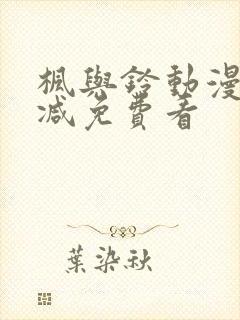 楓與鈴動漫
減免費看
葉染秋